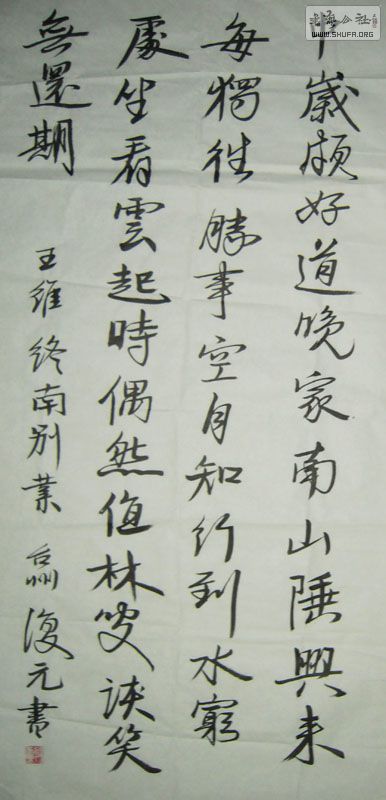 WWW.SHUFA.ORG
中歲頗好道晚家南山陲興来
每獨往勝事空自知行到水窮
處坐看雲起時偶然值林叟談笑
無還期
王維終南别業 台州復元書